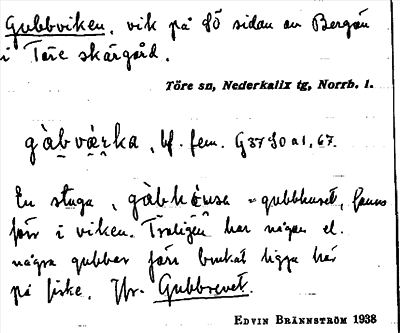 Gubbviken, vik på SÖ sidan av Bergön
i Töre skärgård.
Töre sn, Nederkalix tg, Norrb. l.
gàbvæ̀rka, bf. fem. G 37 90 a 1, 67.
En stuga, gàbhúusa = gubbhuset, fanns
förr i viken. Troligen har någon el.
några gubbar förr brukat ligga här
på fiske. Jfr. Gubbrevet.
EDVIN BRÄNNSTRÖM 1938